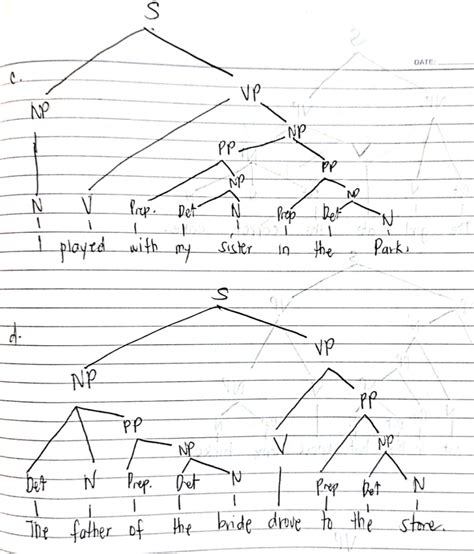 S
DATE:
c.
NP VP
NP
PP PP
NP NP
N V Prep. Det N Prep Det N
I played with my sister in the Park.
S
d.
NP VP
PP PP
NP V NP
Det N Prep. Det N Prep Det N
The father of the bride drove to the store.